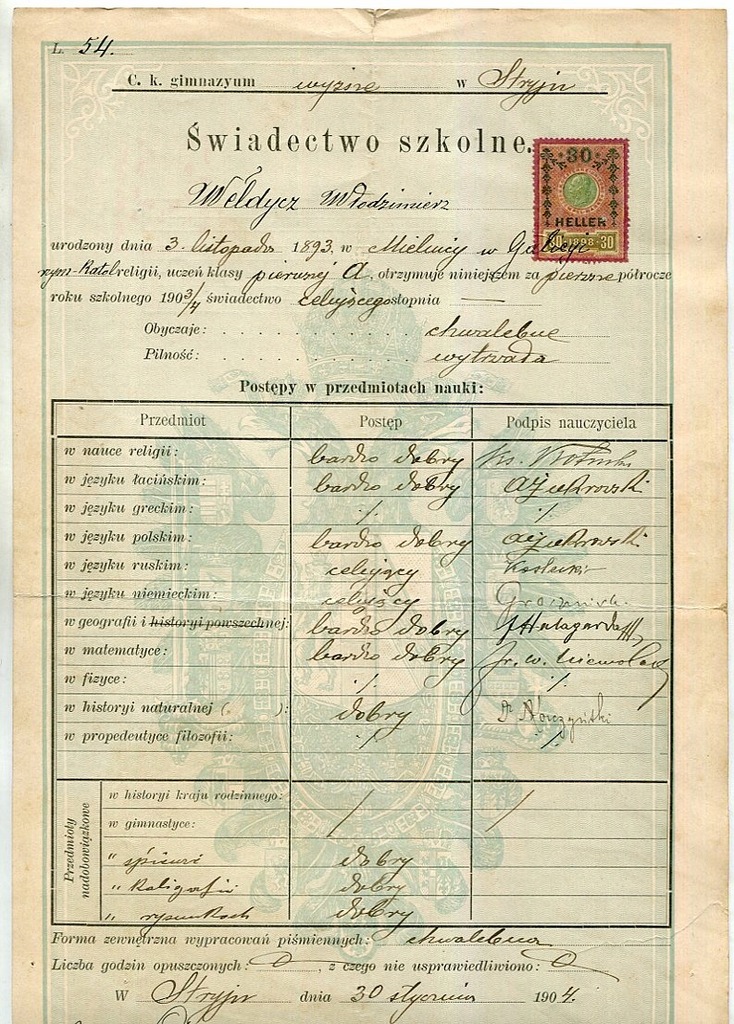 L. 54.
C. k. gimnazyum wyższe w Stryju
Świadectwo szkolne.
30
HELLER
30 1898 30
Weldycz Włodzimierz
urodzony dnia 3. listopada 1893, w Mielnicy w Galicyi
rzym-katol religii, uczeń klasy pierwszej A, otrzymuje niniejszem za pierwsze półrocze
roku szkolnego 1903/4 świadectwo celującego stopnia —
Obyczaje: chwalebne
Pilność: wytrwała
Postępy w przedmiotach nauki:
Przedmiot Postęp Podpis nauczyciela
w nauce religii: bardzo dobry Ks.
w języku łacińskim: bardzo dobry
w języku greckim: ./. ./.
w języku polskim: bardzo dobry
w języku ruskim: celujący
w języku niemieckim: celujący
w geografii i historyi powszechnej: bardzo dobry
w matematyce: bardzo dobry
w fizyce: ./. ./.
w historyi naturalnej ( ): dobry
w propedeutyce filozofii: ./. ./.
Przedmioty nadobowiązkowe
w historyi kraju rodzinnego:
w gimnastyce: / /
" śpiewie dobry
" kaligrafii dobry
" rysunkach dobry
Forma zewnętrzna wypracowań piśmiennych: chwalebna
Liczba godzin opuszczonych: 0, z czego nie usprawiedliwiono: 0
W Stryju dnia 30 stycznia 1904.